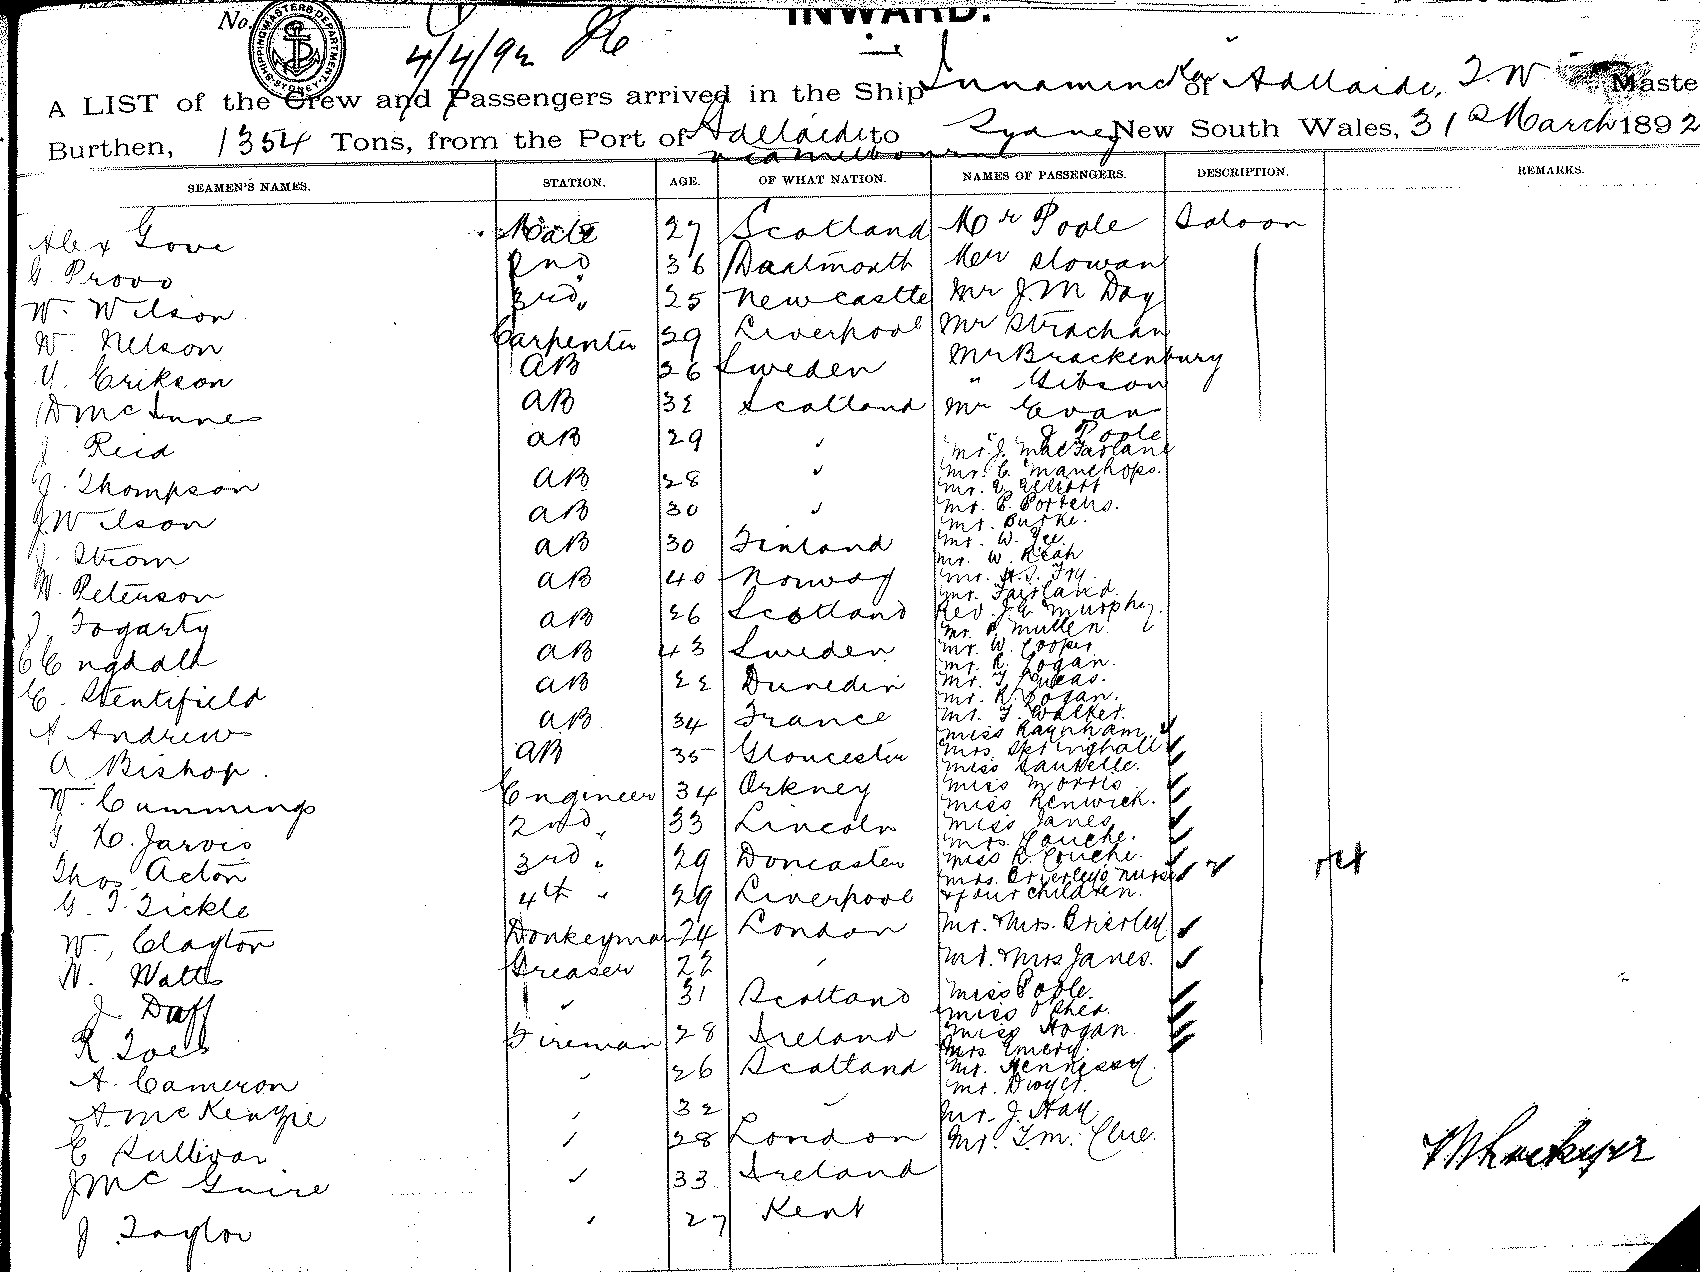 No.
SHIPPING MASTERS DEPARTMENT. SYDNEY
4/4/92
INWARD.
A LIST of the Crew and Passengers arrived in the Ship Innamincka of Adelaide, Maste
Burthen, 1354 Tons, from the Port of Adelaide to Sydney New South Wales, 31 March 1892
via Melbourne
SEAMEN'S NAMES. STATION. AGE. OF WHAT NATION. NAMES OF PASSENGERS. DESCRIPTION. REMARKS.
Alex Gove Mate 27 Scotland Mr Poole Saloon
G. Provo 2nd 36 Dartmouth Slowan
W. Wilson 3rd 25 Newcastle Mr J.M Day
W. Nelson Carpenter 29 Liverpool Mr Strachan
Erikson AB 26 Sweden Mr Brackenbury
" Gibson
D McInnes AB 32 Scotland Mr Evan
J. Reid AB 29 " J Poole
Mr. J. MacFarlane
J. Thompson AB 28 " Mr. C. Manchops.
Mr. E. Elliott
J Wilson AB 30 " Mr. P. Porteus.
Mr. Burke.
J. Strom AB 30 Finland Mr. W. Gee.
Mr. W. Keah
W. Peterson AB 40 Norway Mr. A.J. Fry.
Mr. Fairland.
J. Fogarty AB 26 Scotland Rev. J. Murphy.
Mr. P. Mullen.
C Engdall AB 43 Sweden Mr. W. Cooper.
Mr. R. Logan.
C. Stentifield AB 22 Dunedin Mr. T. Lucas.
Mr. R. Logan.
A Andrew AB 34 France Mr. J. Walker.
Miss Raynham.
A Bishop. AB 35 Gloucester Mrs. Springhall
Miss
W. Cummings Engineer 34 Orkney Miss Morris
Miss Renwick.
Jarvis 2nd " 33 Lincoln Miss Janes
Mrs. Couche.
Thos Acton 3rd " 29 Doncaster Miss R. Couche.
Mrs. Brierley's nurse
G. T. Tickle 4th " 29 Liverpool & four children.
W. Clayton Donkeyman 24 London Mr. & Mrs. Brierley
W. Watts Greaser 22 " Mr. & Mrs Janes.
J. Duff " 31 Scotland Miss Poole.
Miss O'Shea.
R Fireman 28 Ireland Miss Hogan
Mrs. Emery.
A. Cameron " 26 Scotland Mr. Hennessy.
Mr. Dwyer.
A McKenzie " 32 " Mr. J. Hay
C Sullivan " 28 London Mr. T.M. Clue.
J McGuire " 33 Ireland
J Taylor " 27 Kent